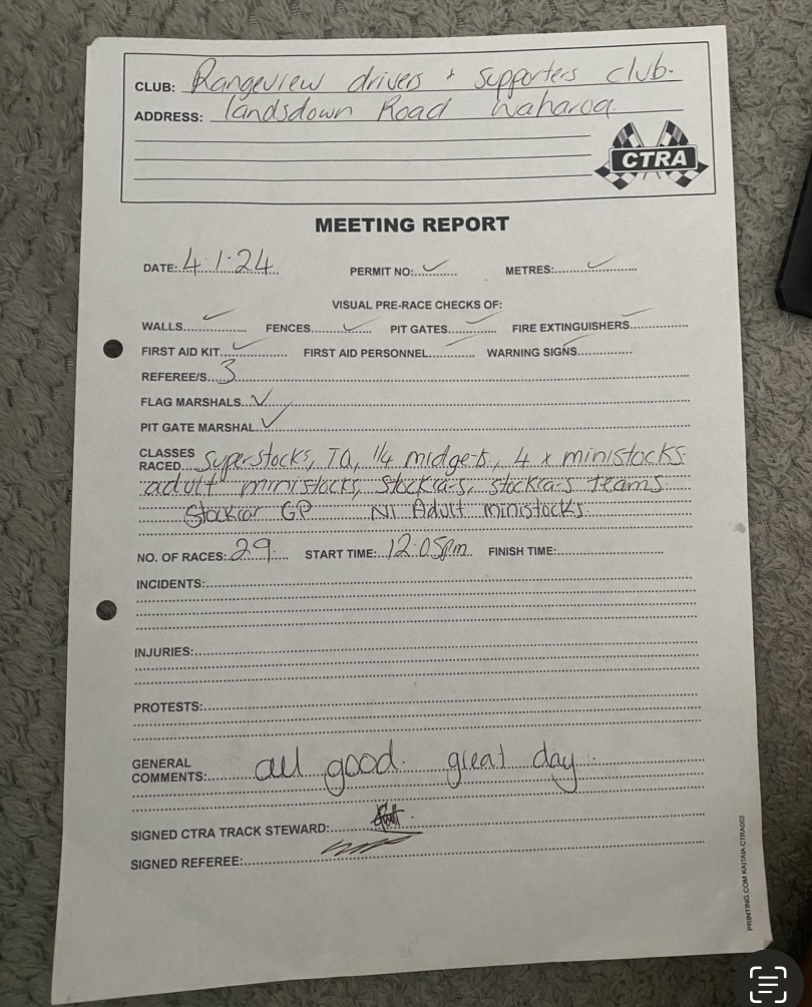 CLUB: Rangeview drivers + supporters club.
ADDRESS: landsdown Road Waharoa
CTRA
MEETING REPORT
DATE: 4.1.24 PERMIT NO: ✓ METRES: ✓
VISUAL PRE-RACE CHECKS OF:
WALLS ✓ FENCES ✓ PIT GATES ✓ FIRE EXTINGUISHERS ✓
FIRST AID KIT ✓ FIRST AID PERSONNEL ✓ WARNING SIGNS ✓
REFEREE/S 3
FLAG MARSHALS ✓
PIT GATE MARSHAL ✓
CLASSES
RACED Superstocks, TQ, 1/4 midgets, 4 x ministocks
adult ministocks, stockcars, stockcars teams
Stockcar GP NI Adult ministocks
NO. OF RACES: 29 START TIME: 12:05pm FINISH TIME:
INCIDENTS:
INJURIES:
PROTESTS:
GENERAL
COMMENTS: all good. great day
SIGNED CTRA TRACK STEWARD:
SIGNED REFEREE:
PRINTING.COM KAITAIA CTRA002